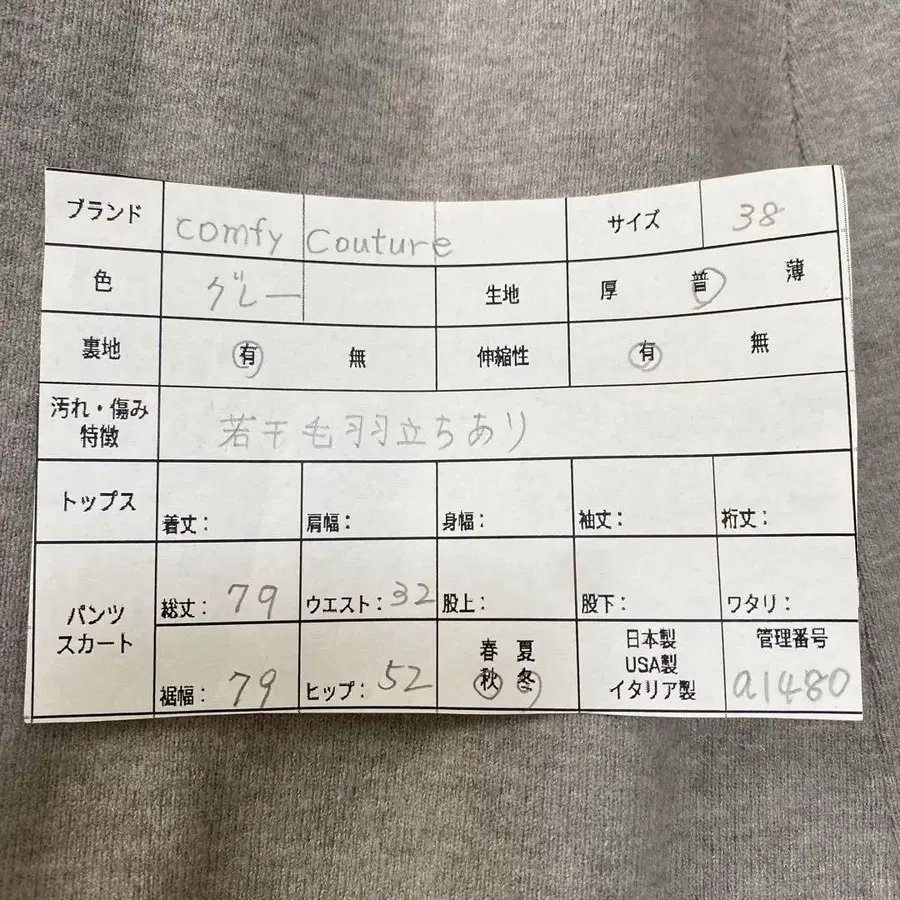 ブランド comfy Couture サイズ 38
色 グレー 生地 厚 普 薄
裏地 有 無 伸縮性 有 無
汚れ・傷み
特徴
若干毛羽立ちあり
トップス 着丈: 肩幅: 身幅: 袖丈: 裄丈:
パンツ
スカート
総丈: 79 ウエスト: 32 股上: 股下: ワタリ:
裾幅: 79 ヒップ: 52
春 夏
秋 冬
日本製
USA製
イタリア製
管理番号
a1480